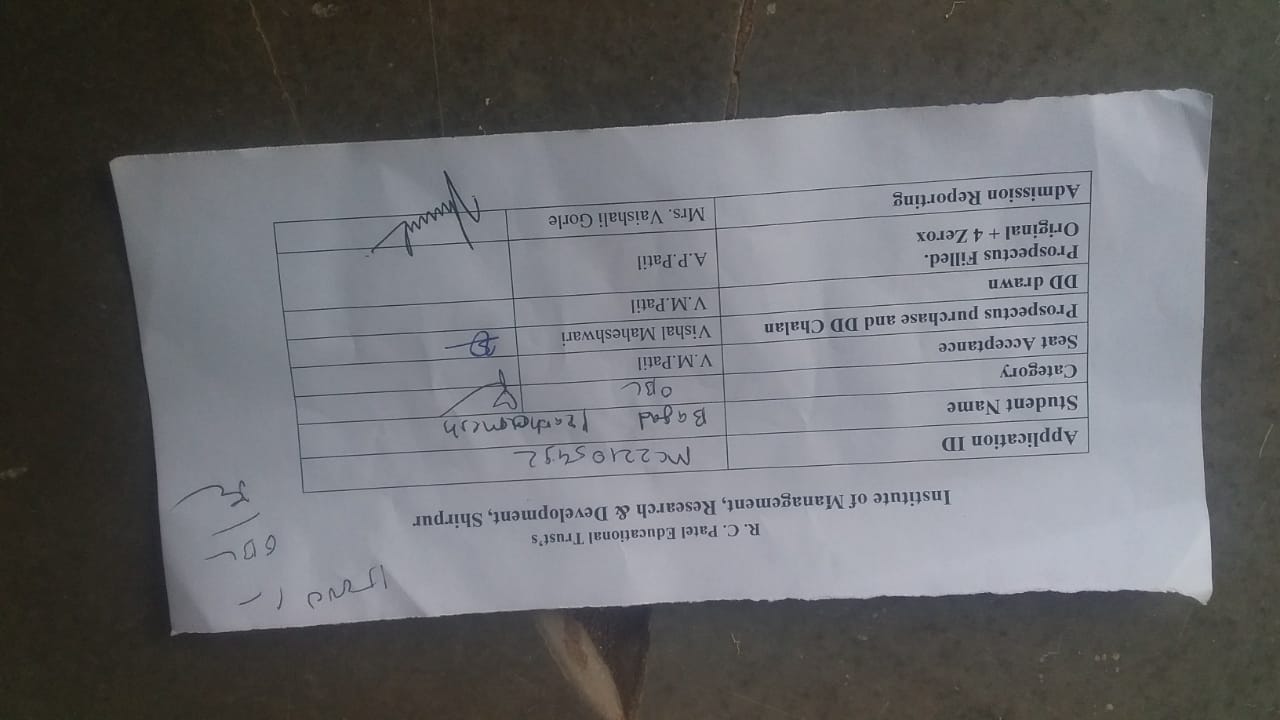 15000/-
OBC
R. C. Patel Educational Trust's
Institute of Management, Research & Development, Shirpur
Application ID MC22105492
Student Name Bagad Prathamesh
Category OBC
Seat Acceptance V.M.Patil
Prospectus purchase and DD Chalan Vishal Maheshwari
DD drawn V.M.Patil
Prospectus Filled.
Original + 4 Zerox A.P.Patil
Admission Reporting Mrs. Vaishali Gorle